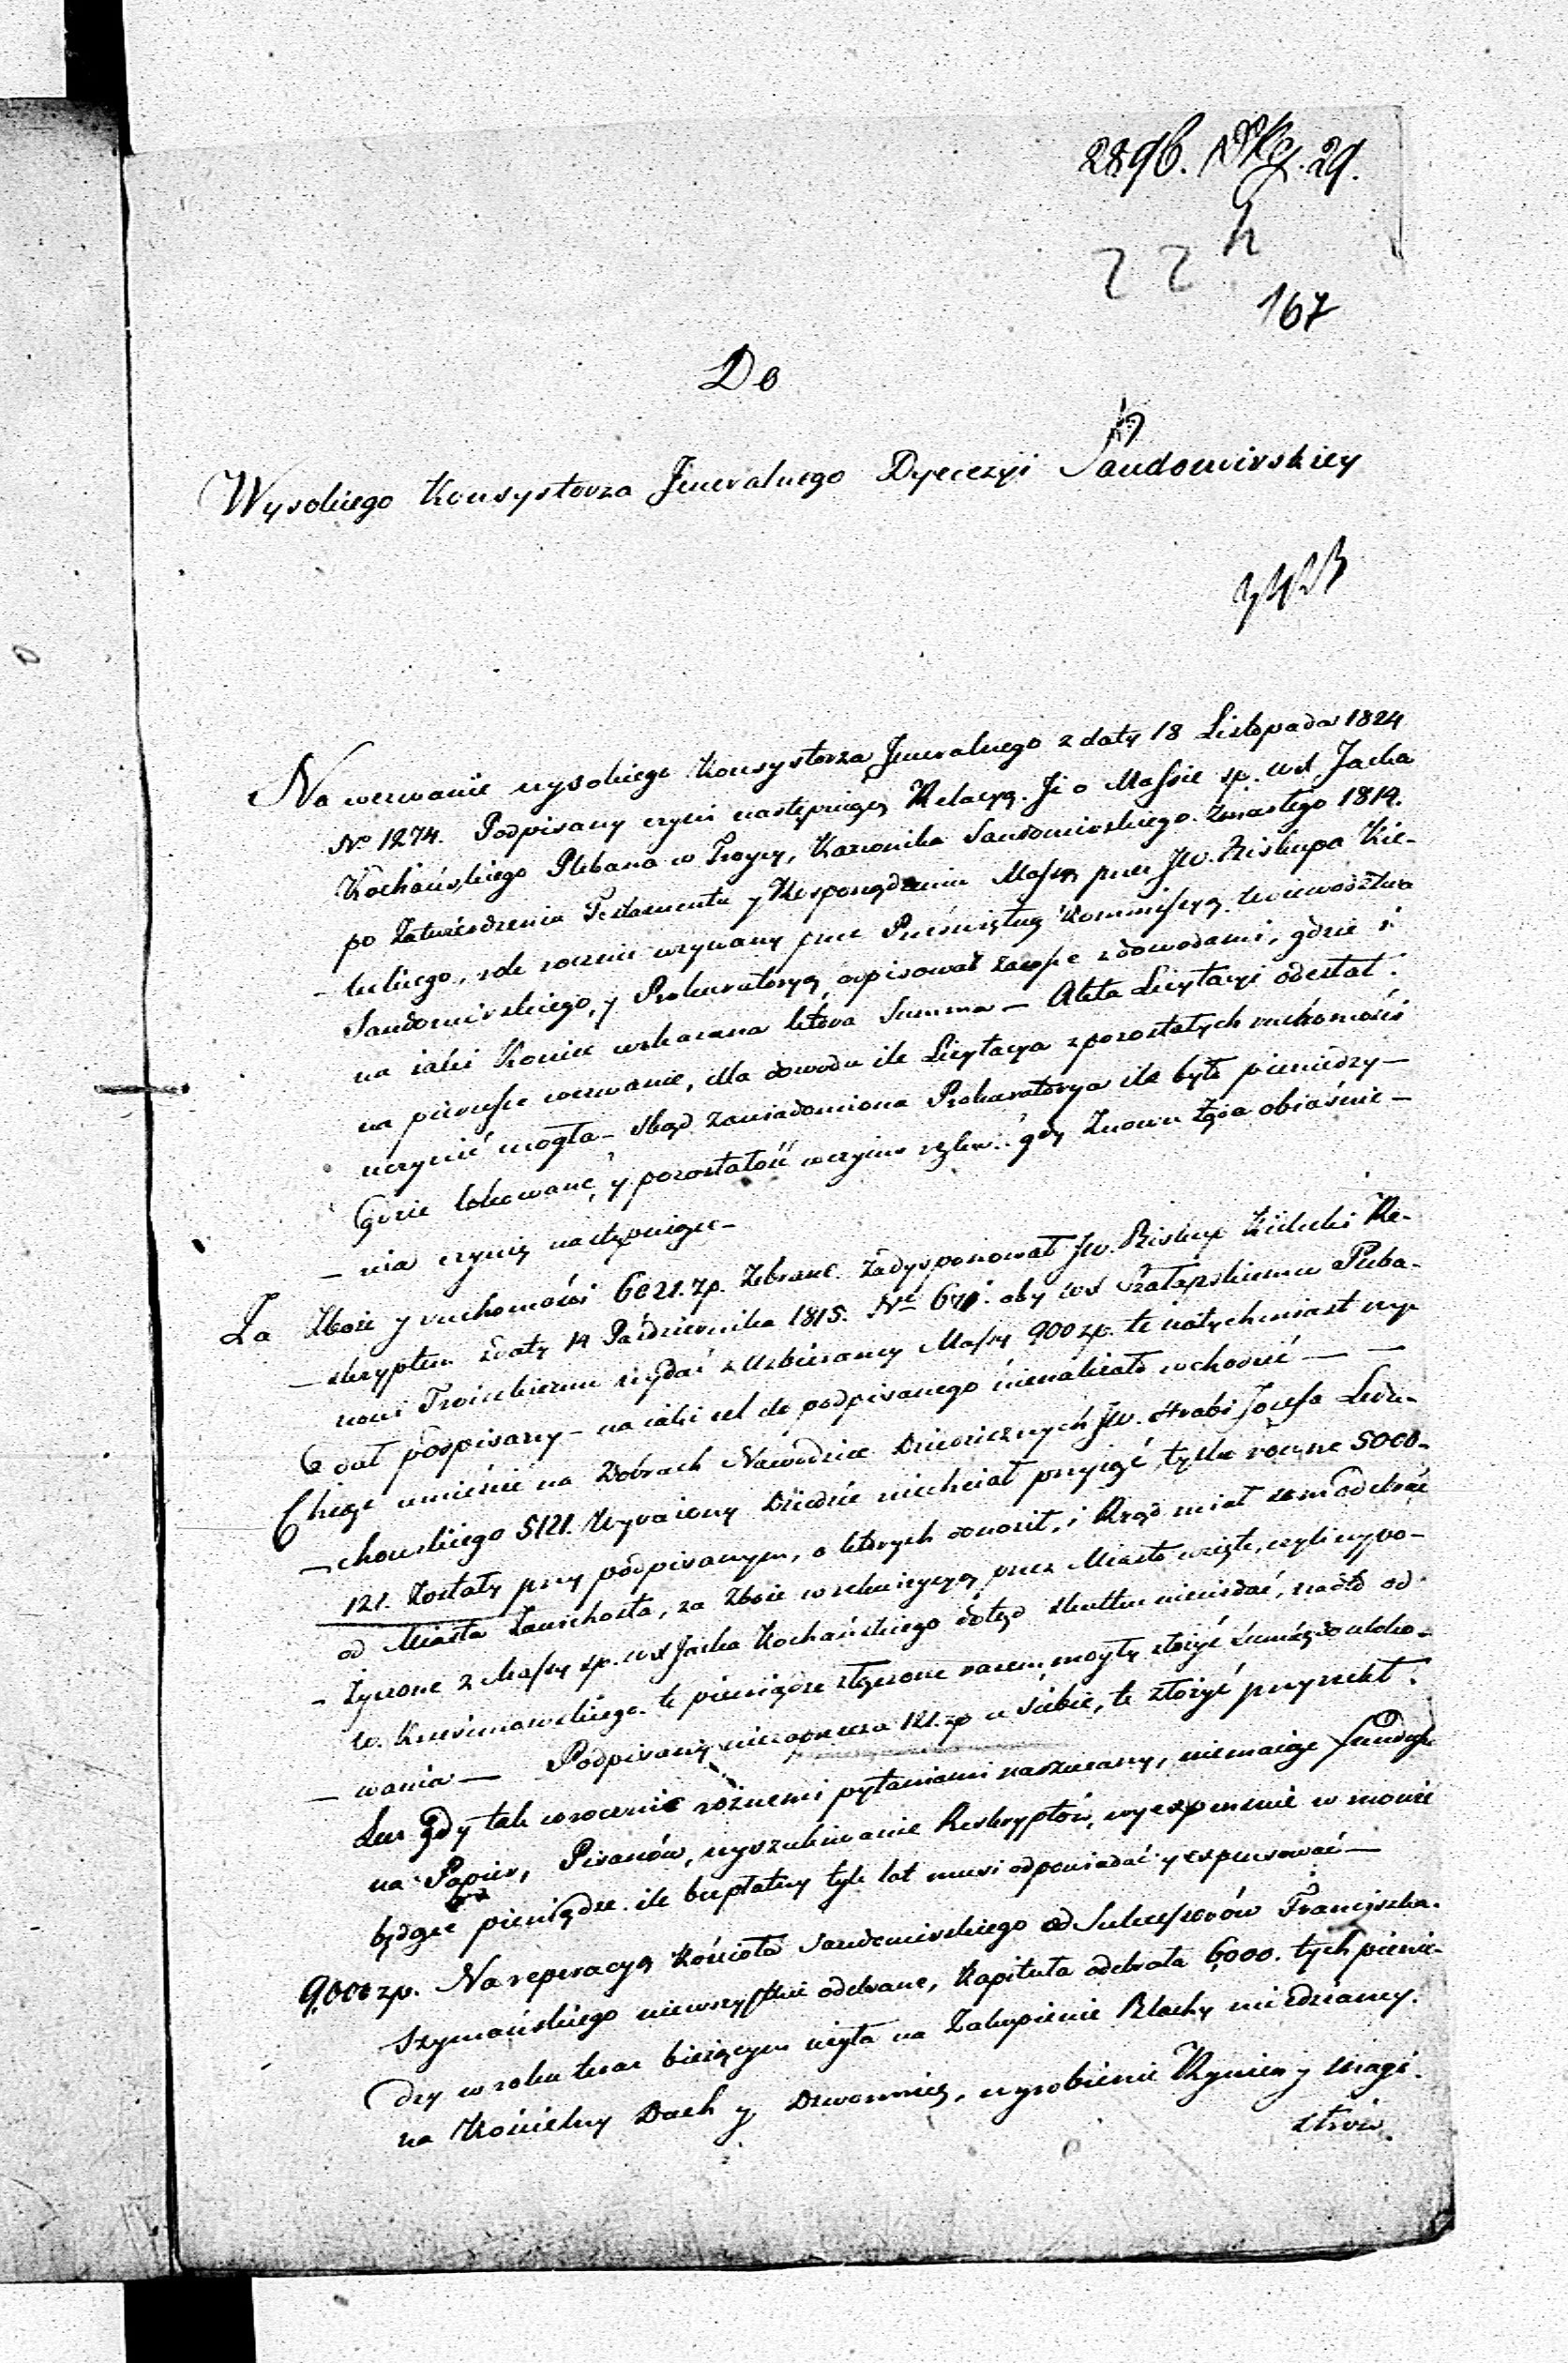 289b. 29.
22
167
Do
Wysokiego Konsystorza Jeneralnego Dyecezyi Sandomirskiey
Na wezwanie wysokiego Konsystorza Jeneralnego z daty 18 Listopada 1824
No 1274. Podpisany czyni następuiącą Relacyą. Iż o Massie sp. wX Jacka
Kochańskiego Plebana w Troycy, Kanonika Sandomirskiego zmarłego 1814.
po Zatwierdzeniu Testamentu y Rosporządzeniu Massą przez JW. Biskupa Kie-
leckiego, rok rocznie wzywany przez Prześwietną Kommissyą Woiewodztwa
Sandomirskiego, y Prokuratoryą, opisował zawsze z dowodami, gdzie i
na iaki Koniec wskazana która Summa — Akta Licytacyi odesłał
na pierwsze wezwanie, dla dowodu ile Licytacya z pozostałych ruchomości
uczynić mogła — skąd zawiadomiona Prokuratorya ile było pieniedzy —
Gdzie lokowane, y pozostałość w czyim ręku. gdy Znowu żąda obiaśnie-
nia czynię następuiące —
Za Zboże y ruchomości 6021. zp. Zebrane. Zadysponował JW. Biskup Kielecki Re-
skryptem z daty 14 Października 1815. No aby wX Pleba-
nowi Troickiemu wydać z Uzbieraney Massy 900 zp. te natychmiast wy-
dał podpisany — na iaki cel do podpisanego nienależało wchodzić — —
Chcąc umieścić na Dobrach Nawodzice Dziedzicznych JW. Hrabi Jozefa Ledu-
chowskiego 5121. Wyrażony Dziedzic niechciał przyiąć, tylko rowne 5000-
121. Zostały przy podpisanym, o których donosił, i Rząd miał sam odebrać
od Miasta Zawichosta, za Zboże w rekwizycyą przez Miasto wzięte, czyli wypo-
życzone z Massy sp. wX Jacka Kochańskiego dotąd skutku niewidać, nadto od
w. te pieniądze złączone razem mogły złożyć Summę do uloko-
wania — Podpisany niezaprzecza 121. zp u siebie, te złożyć przyrzekł.
Lecz gdy tak corocznie rożnemi pytaniami naszuany, niemaiąc funduszu
na Papier, Pisarzów, wyszukiwanie Reskryptów, wyexpensuie w mowie
będące pieniądze. ile bezpłatny tyle lat musi odpowiadać y expensować —
9,000 zp. Na reperacyą Kościoła Sandomirskiego od Sukcessorów Franciszka
Szymańskiego niewszystkie odebrane, Kapituła odebrała 6000. tych pienie-
dzy w roku teraz bieżącym użyła na Zakupienie Blachy miedzianey
na Kościelny Dach y Dzwonnicę, wyrobienie Rynien y Magi-
strów.